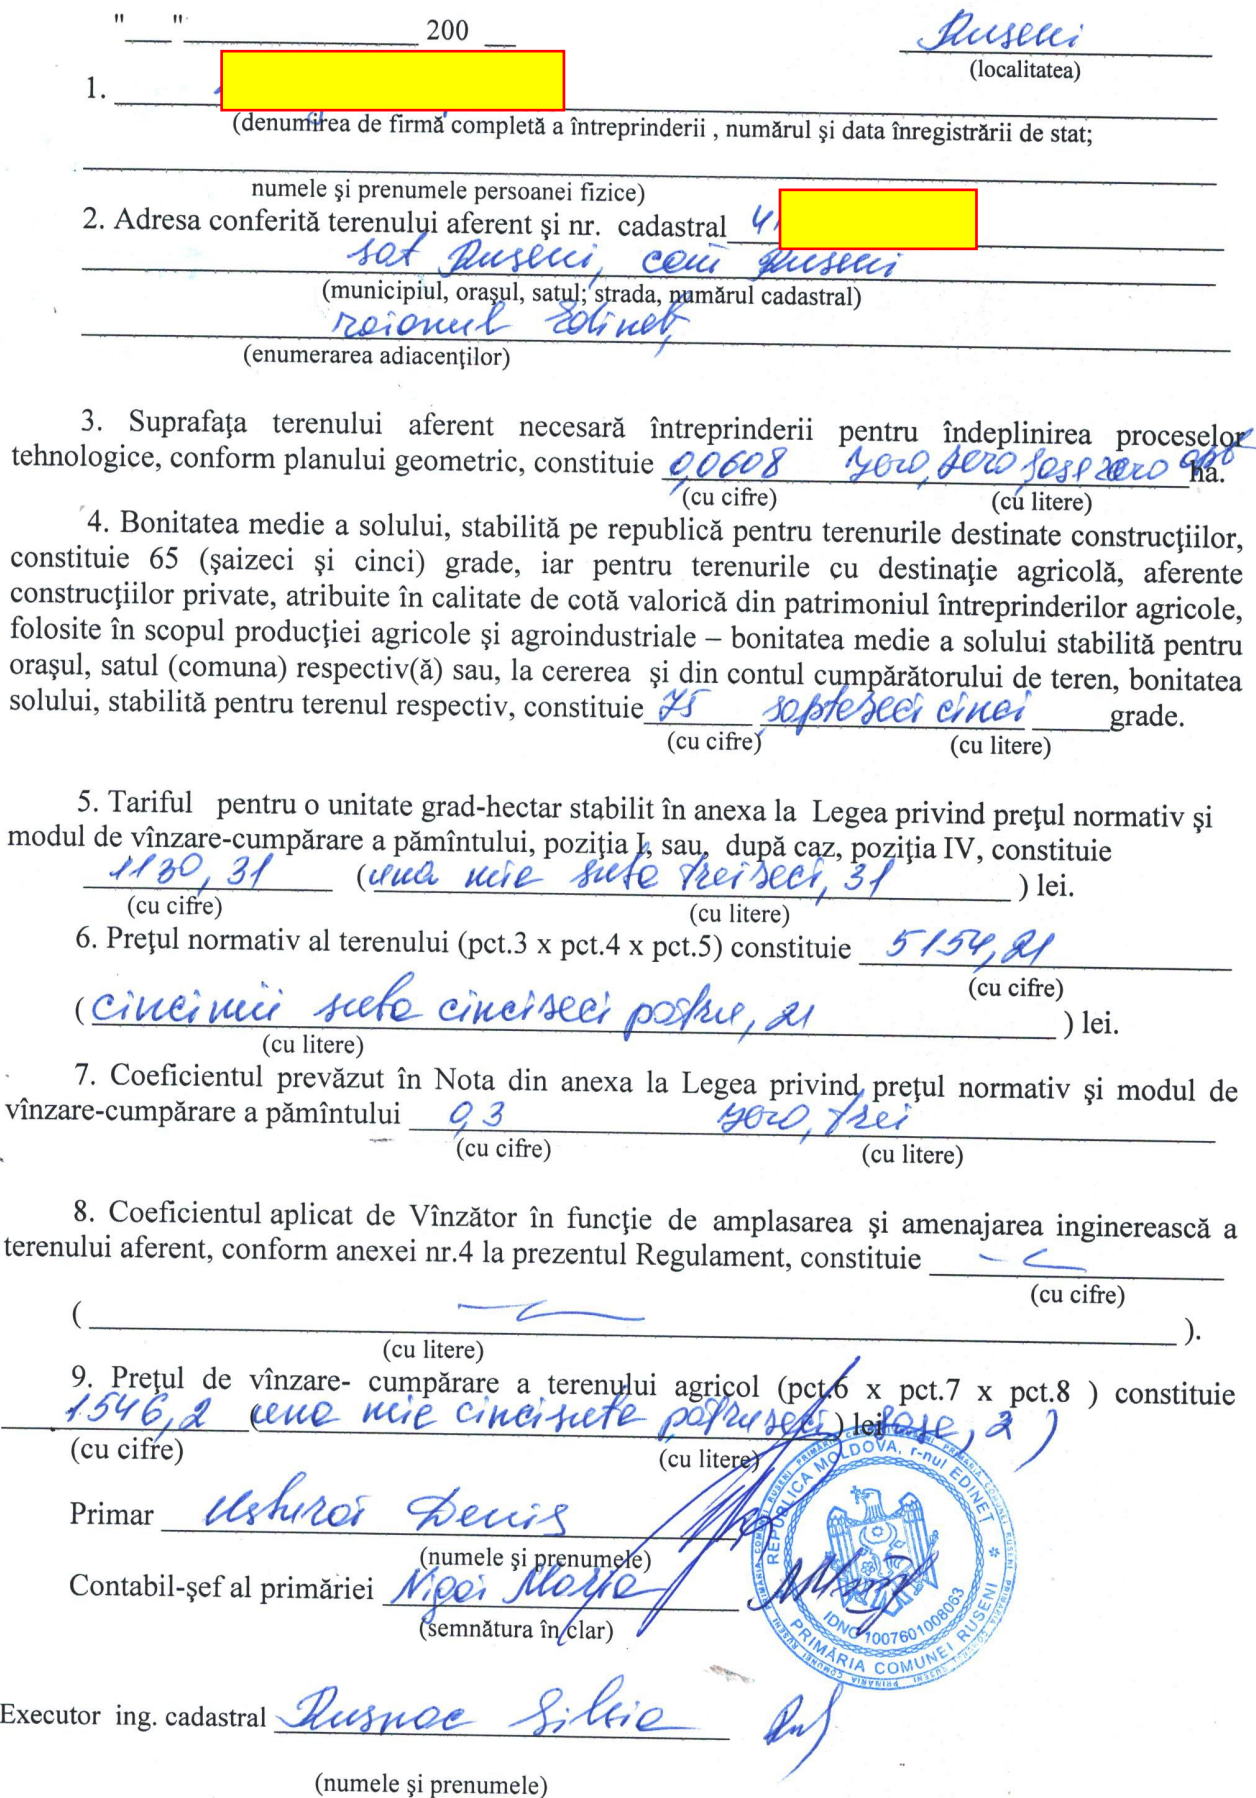 "___" ____________ 200 __
Ruseni
(localitatea)
1.
(denumirea de firmă completă a întreprinderii , numărul şi data înregistrării de stat;
numele şi prenumele persoanei fizice)
2. Adresa conferită terenului aferent şi nr. cadastral 41
sat Ruseni, com Ruseni
(municipiul, oraşul, satul; strada, numărul cadastral)
raionul Edineț
(enumerarea adiacenţilor)
3. Suprafaţa terenului aferent necesară întreprinderii pentru îndeplinirea proceselor
tehnologice, conform planului geometric, constituie 0,0608 zero, zero șase zero opt ha.
(cu cifre) (cu litere)
4. Bonitatea medie a solului, stabilită pe republică pentru terenurile destinate construcţiilor,
constituie 65 (şaizeci şi cinci) grade, iar pentru terenurile cu destinaţie agricolă, aferente
construcţiilor private, atribuite în calitate de cotă valorică din patrimoniul întreprinderilor agricole,
folosite în scopul producţiei agricole şi agroindustriale – bonitatea medie a solului stabilită pentru
oraşul, satul (comuna) respectiv(ă) sau, la cererea şi din contul cumpărătorului de teren, bonitatea
solului, stabilită pentru terenul respectiv, constituie 75 șaptezeci cinci grade.
(cu cifre) (cu litere)
5. Tariful pentru o unitate grad-hectar stabilit în anexa la Legea privind preţul normativ şi
modul de vînzare-cumpărare a pămîntului, poziţia I, sau, după caz, poziţia IV, constituie
1130,31 (una mie suta treizeci, 31 ) lei.
(cu cifre) (cu litere)
6. Preţul normativ al terenului (pct.3 x pct.4 x pct.5) constituie 5154,21
(cu cifre)
( cinci mii suta cincizeci patru, 21 ) lei.
(cu litere)
7. Coeficientul prevăzut în Nota din anexa la Legea privind preţul normativ şi modul de
vînzare-cumpărare a pămîntului 0,3 zero, trei
(cu cifre) (cu litere)
8. Coeficientul aplicat de Vînzător în funcţie de amplasarea şi amenajarea inginerească a
terenului aferent, conform anexei nr.4 la prezentul Regulament, constituie
(cu cifre)
( ).
(cu litere)
9. Preţul de vînzare- cumpărare a terenului agricol (pct.6 x pct.7 x pct.8 ) constituie
1546,2 (una mie cincisute patruzeci ) lei șase, 2 )
(cu cifre) (cu litere)
Primar Usturoi Denis
(numele şi prenumele)
Contabil-şef al primăriei Nigai Maria
(semnătura în clar)
REPUBLICA MOLDOVA, r-nul EDINEŢ
PRIMĂRIA COMUNEI RUSENI
IDNO 1007601008063
Executor ing. cadastral Rusnac Silvia
(numele şi prenumele)